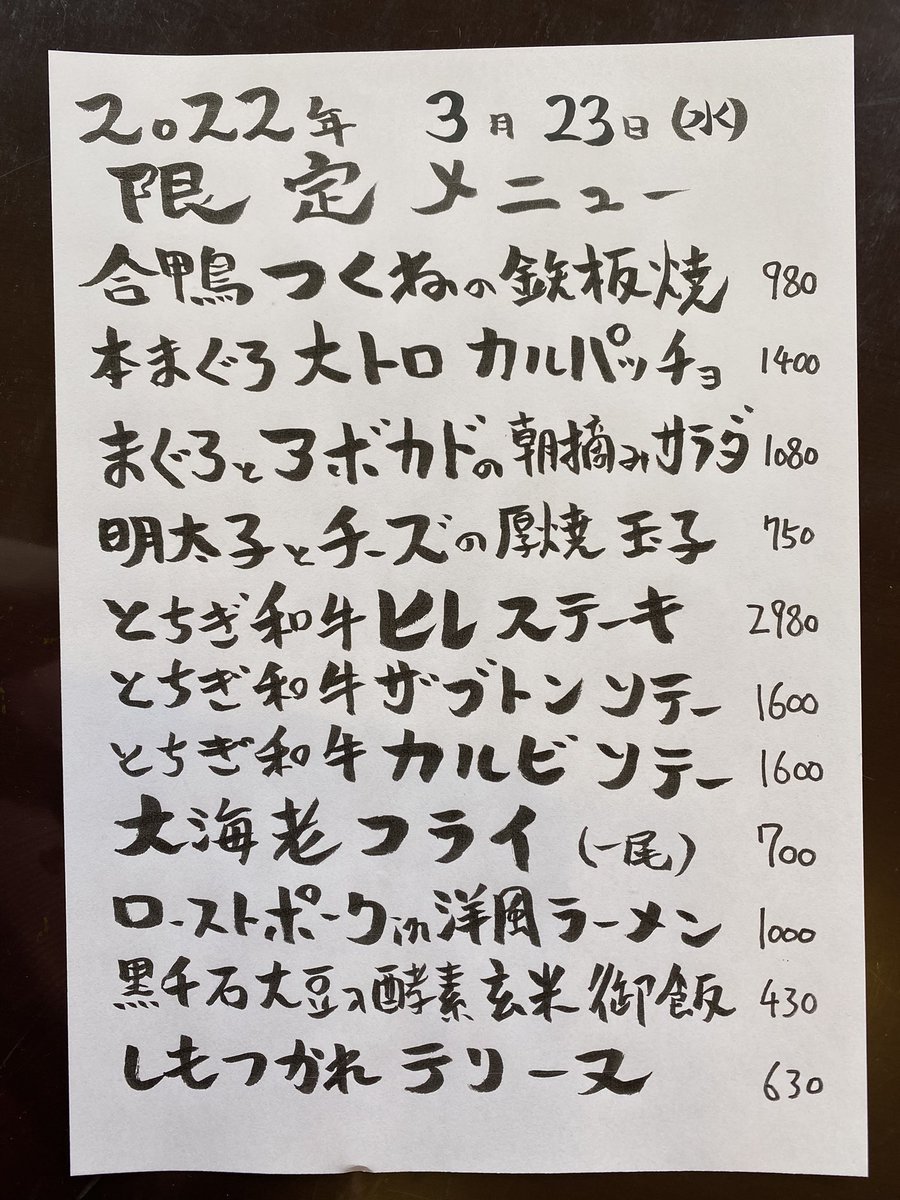 2022年 3月23日(水)
限定メニュー
合鴨つくねの鉄板焼 980
本まぐろ大トロ カルパッチョ 1400
まぐろとアボカドの朝摘みサラダ 1080
明太子とチーズの厚焼玉子 750
とちぎ和牛ヒレステーキ 2980
とちぎ和牛ザブトンソテー 1600
とちぎ和牛カルビソテー 1600
大海老フライ(一尾) 700
ローストポークin洋風ラーメン 1000
黒千石大豆入酵素玄米御飯 430
しもつかれテリーヌ 630